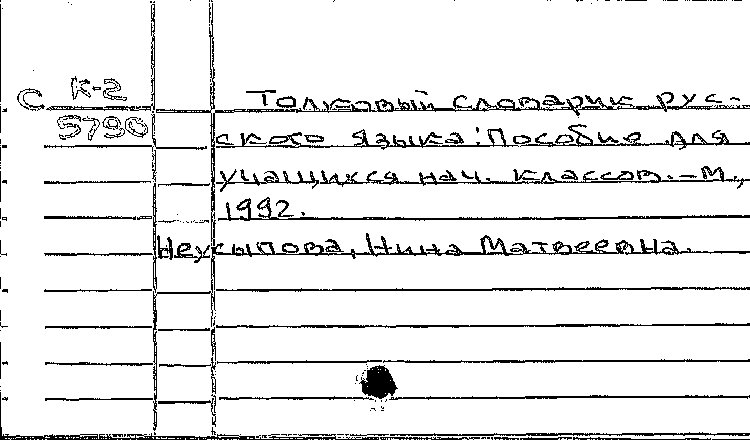 С К-2
5790
Толковый словарик рус-
ского языка: Пособие для
учащихся нач. классов. – М.,
1992.
Неусыпова, Нина Матвеевна.